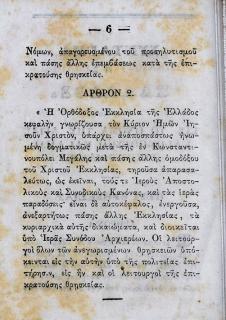 — 6 —
Νόμων, ἀπαγορευομένου τοῦ προσηλυτισμοῦ
καὶ πάσης ἄλλης ἐπεμβάσεως κατὰ τῆς ἐπι-
κρατούσης θρησκείας.
ΑΡΘΡΟΝ 2.
« Ἡ Ὀρθόδοξος Ἐκκλησία τῆς Ἑλλάδος
κεφαλὴν γνωρίζουσα τὸν Κύριον Ἡμῶν Ἰη-
σοῦν Χριστὸν, ὑπάρχει ἀναποσπάστως ἡνω-
μένη δογματικῶς μετὰ τῆς ἐν Κωνσταντι-
νουπόλει Μεγάλης καὶ πάσης ἄλλης ὁμοδόξου
τοῦ Χριστοῦ Ἐκκλησίας, τηροῦσα ἀπαρασα-
λεύτως, ὡς ἐκεῖναι, τούς τε Ἱεροὺς Ἀποστο-
λικοὺς καὶ Συνοδικοὺς Κανόνας, καὶ τὰς ἱερὰς
παραδόσεις· εἶναι δὲ αὐτοκέφαλος, ἐνεργοῦσα,
ἀνεξαρτήτως πάσης ἄλλης Ἐκκλησίας, τὰ
κυριαρχικὰ αὐτῆς δικαιώματα, καὶ διοικεῖται
ὑπὸ Ἱερᾶς Συνόδου Ἀρχιερέων. Οἱ λειτουρ-
γοὶ ὅλων τῶν ἀνεγνωρισμένων θρησκειῶν ὑπό-
κεινται εἰς τὴν αὐτὴν ὑπὸ τῆς πολιτείας ἐπι-
τήρησιν, εἰς ἣν καὶ οἱ λειτουργοὶ τῆς ἐπι-
κρατούσης θρησκείας.